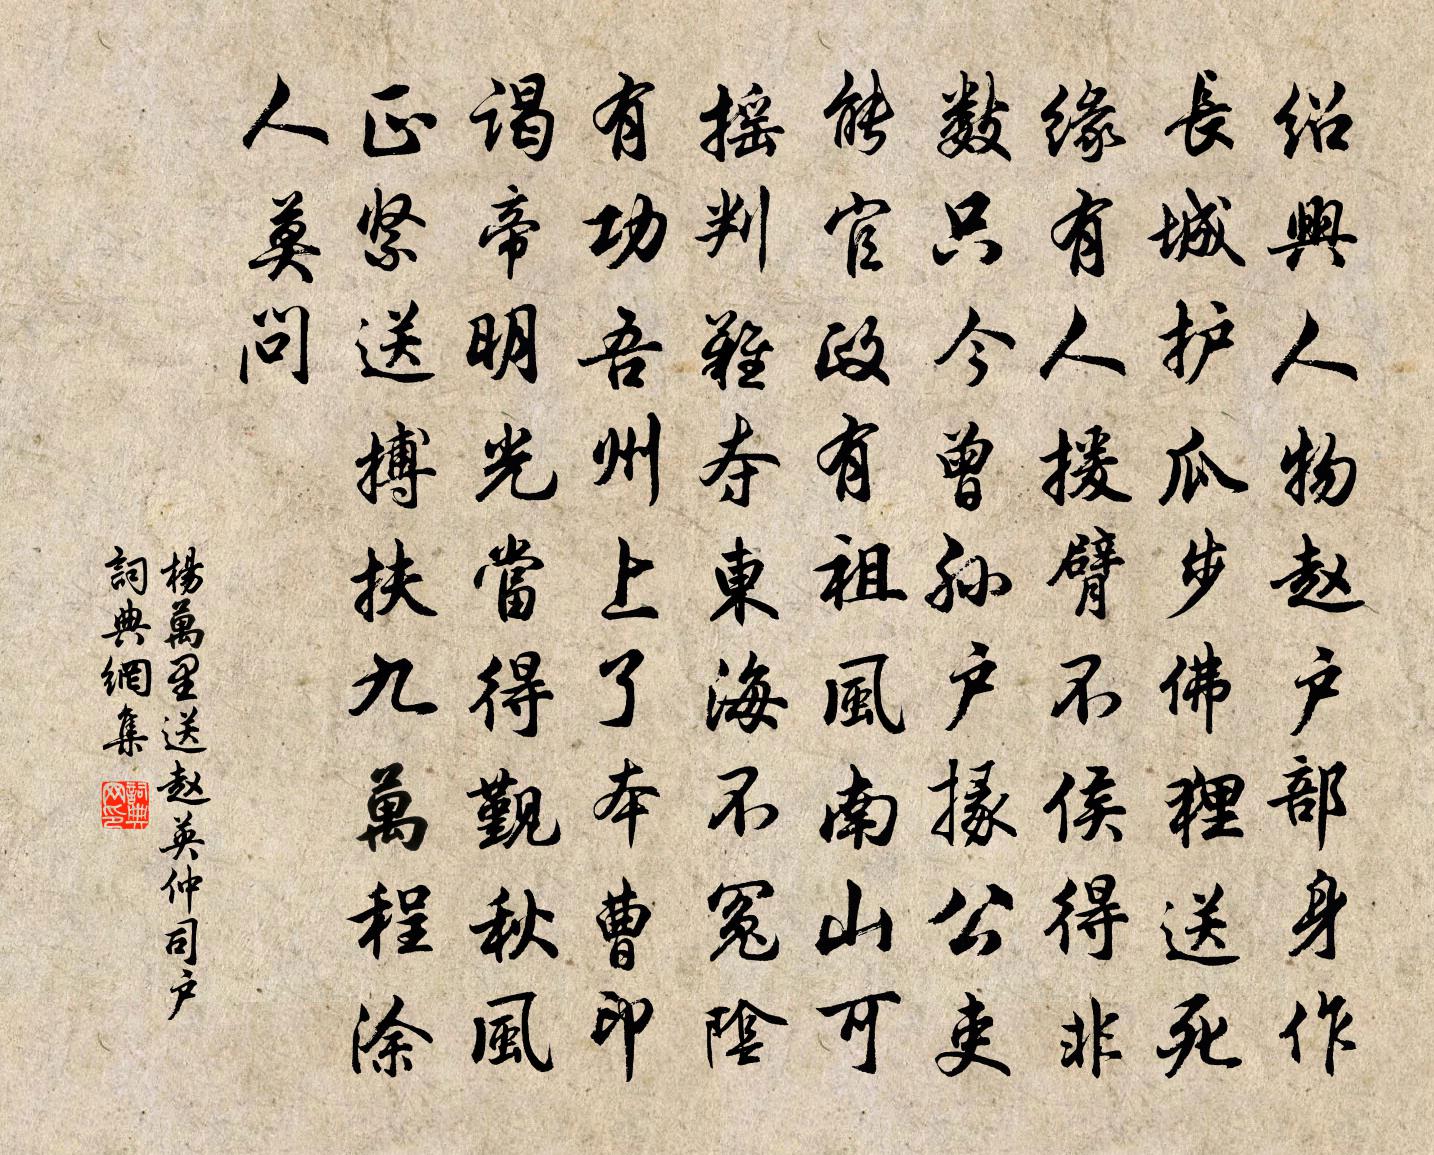 绍興人物赵户部身作
長城护瓜步佛狸送死
缘有人援臂不侯得非
数只今曾孙户掾公吏
能官政有祖風南山可
摇判難夺東海不冤陰
有功吾州上了本曹印
谒帝明光當得觐秋風
正紧送搏扶九萬程涂
人莫问
楊萬里送赵英仲司户
詞典網集
詞典网印